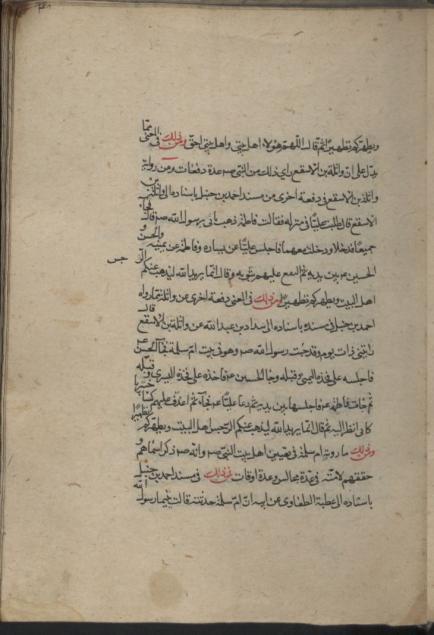 ويطهركم تطهيرا ثم قال اللهم هؤلاء اهل بيتي واهل بيتي احق ومن ذلك في المعنى مما
يدل على ان واثلة بن الاسقع راى ذلك من النبي ص عدة دفعات ومن رواية
واثلة بن الاسقع في دفعة اخرى من مسند احمد بن حنبل باسناده الى واثلة بن
الاسقع قال طلبت عليا في منزله فقالت فاطمة ذهب ياتي برسول الله ص قال فجاءا
جميعا فدخلا ودخلت معهما فاجلس عليا عن يساره وفاطمة عن يمينه والحسن و
الحسين بين يديه ثم التفع عليهم بثوبه وقال انما يريد الله ليذهب عنكم الرجس
اهل البيت ويطهركم تطهيرا ومن ذلك في المعنى دفعة اخرى عن واثلة ما رواه
احمد بن حنبل في مسنده باسناده الى شداد بن عبد الله عن واثلة بن الاسقع قال
رايتني ذات يوم وقد جئت رسول الله ص وهو في بيت ام سلمة فجاء الحسن
فاجلسه على فخذه اليمنى وقبله وجاء الحسين فاخذه على فخذه اليسرى وقبله
ثم جاءت فاطمة فاجلسها بين يديه ثم دعا عليا فجاء ثم اغدف عليهم كساء خيبريا
كاني انظر اليه ثم قال انما يريد الله ليذهب عنكم الرجس اهل البيت ويطهركم تطهيرا
ومن ذلك ما روته ام سلمة في تعيين اهل بيت النبي ص وانه ص ذكر اسماهم و
حققهم لامته في عدة مجالس وعدة اوقات فمن ذلك في مسند احمد بن حنبل
باسناده الى عطية الطفاوي عن ابيه ان ام سلمة حدثته قالت بينما رسول الله